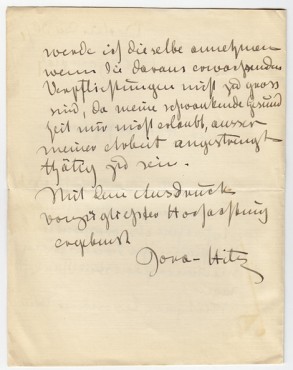 werde ich dieselbe annehmen
wenn die daraus erwachsenden
Verpflichtungen nicht zu gross
sind, da meine schwankende Gesund
heit mir nicht erlaubt, ausser
meiner Arbeit angestrengt
thätig zu sein.
Mit dem Ausdruck
vorzüglichster Hochachtung
ergebenst
Dora Hitz